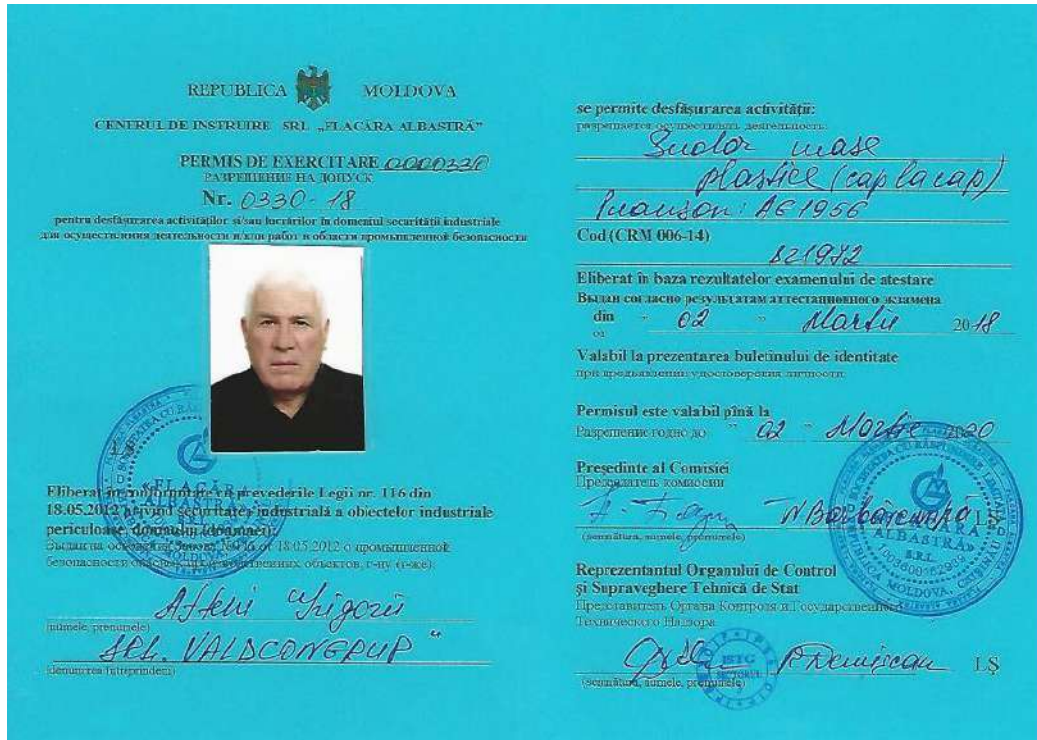 REPUBLICA MOLDOVA
CENTRUL DE INSTRUIRE SRL „FLACĂRA ALBASTRĂ”
PERMIS DE EXERCITARE 0000330
РАЗРЕШЕНИЕ НА ДОПУСК
Nr. 0330-18
pentru desfăşurarea activităţilor si/sau lucrărilor în domeniul securităţii industriale
для осуществления деятельности и/или работ в области промышленной безопасности
Eliberat în conformitate cu prevederile Legii nr. 116 din
18.05.2012 privind securitatea industrială a obiectelor industriale
periculoase, domnului (doamnei):
Выдан на основании Закона №116 от 18.05.2012 о промышленной
безопасности опасных производственных объектов, г-ну (г-же):
Afteni Grigorii
(numele, prenumele)
VALDCONGRUP"
(denumirea întreprinderii)
se permite desfăşurarea activităţii:
разрешается осуществлять деятельность:
Sudor mase
plastice (cap la cap)
Poanson: AG1956
Cod (CRM 006-14)
821972
Eliberat în baza rezultatelor examenului de atestare
Выдан согласно результатам аттестационного экзамена
din " 02 " Martie 2018
от
Valabil la prezentarea buletinului de identitate
при предъявлении удостоверения личности
Permisul este valabil pînă la
Разрешение годно до " 02 " Martie 2020
Preşedinte al Comisiei
Председатель комиссии
(semnătura, numele, prenumele)
Reprezentantul Organului de Control
şi Supraveghere Tehnică de Stat
Представитель Органа Контроля и Государственного
Технического Надзора
R. Demişcan LŞ
(semnătura, numele, prenumele)
«FLACĂRA
ALBASTRĂ»
S.R.L.
MOLDOVA